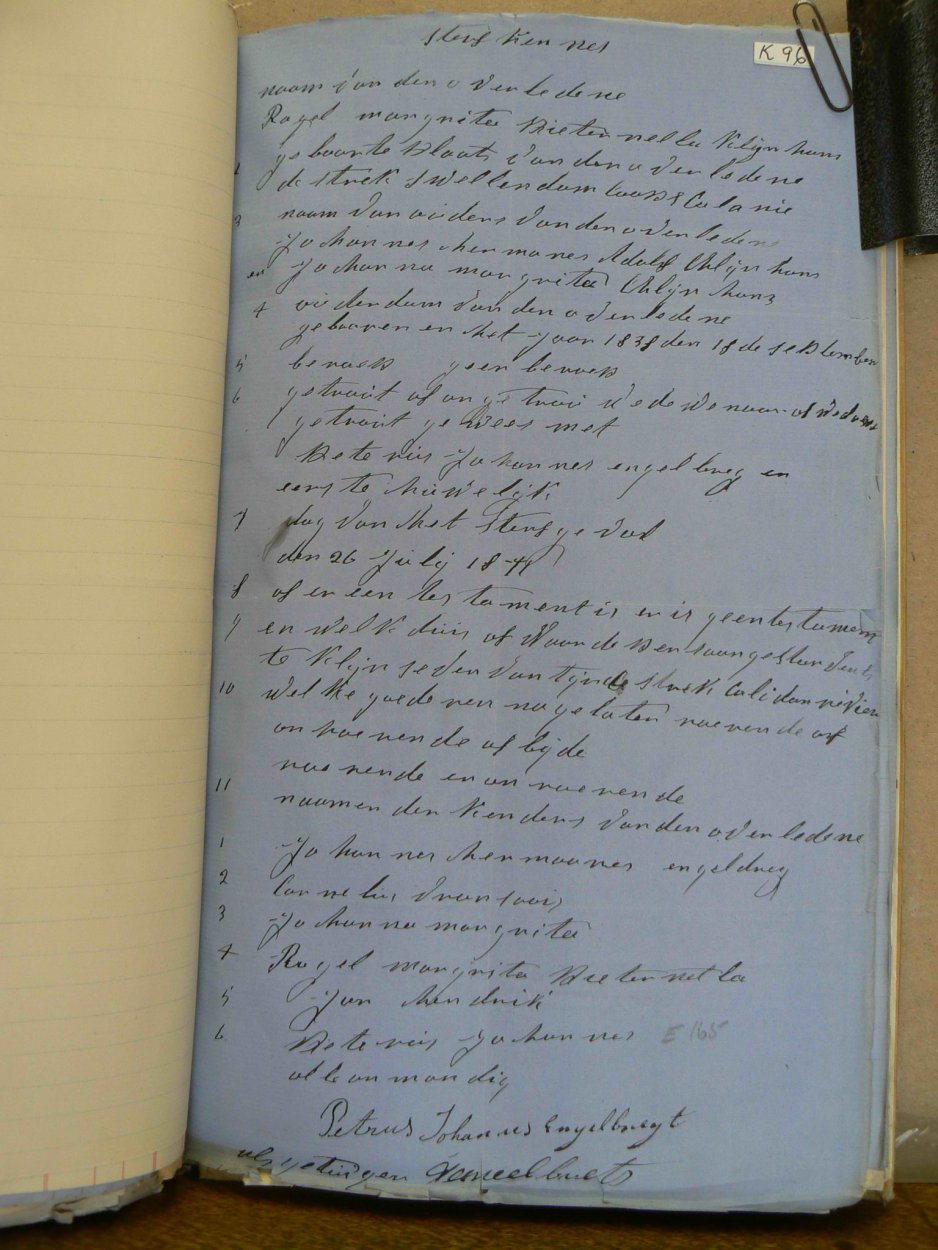 sterf kennes
K 96
naam van den overledene
Ragel margrita Pieternella Klijnhans
geboorte plaats van den overledene
de strek swellendam Caap Calanie
3 naam van ouders van den overledene
Johannes hermanes Adolf Klijnhans
en Johanna margrita Klijnhans
4 ouderdom van den overledene
gebooren en het jaar 1838 den 18 de september
5 beroep geen beroep
6 getrout of ongetrout wedewenaar of
getrout gewees met
Peterus Johannes engelbreg en
eerste huwelijk
7 dag van het sterf geval
den 26 Julij
8 of er een testament is er is geen testament
9 en welk huis of waar de persoon gesturven is
te Klijn sederfontijn de strek Calidan rivier
10 welke goederen nagelaten roerende of
onroerende of bijde
roerende en onroerende
11 naamen der kenders van den overledene
1 Johannes hermaanes engelbreg
2 Cornelius Fransoois
3 Johanna margrita
4 Ragel margrita Pieternella
5 Jan hendrik
6 Peterus Johannes E165
alle onmondig
Petrus Johannes Engelbregt
als getuigen